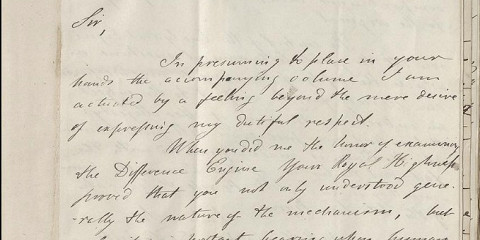 Sir,
In presuming to place in your
hands the accompanying volume I am
actuated by a feeling beyond the mere desire
of expressing my dutiful respect.
When you did me the honor of examining
the Difference Engine Your Royal Highness
proved that you not only understood gene-
rally the nature of the mechanism, but
bearing when human